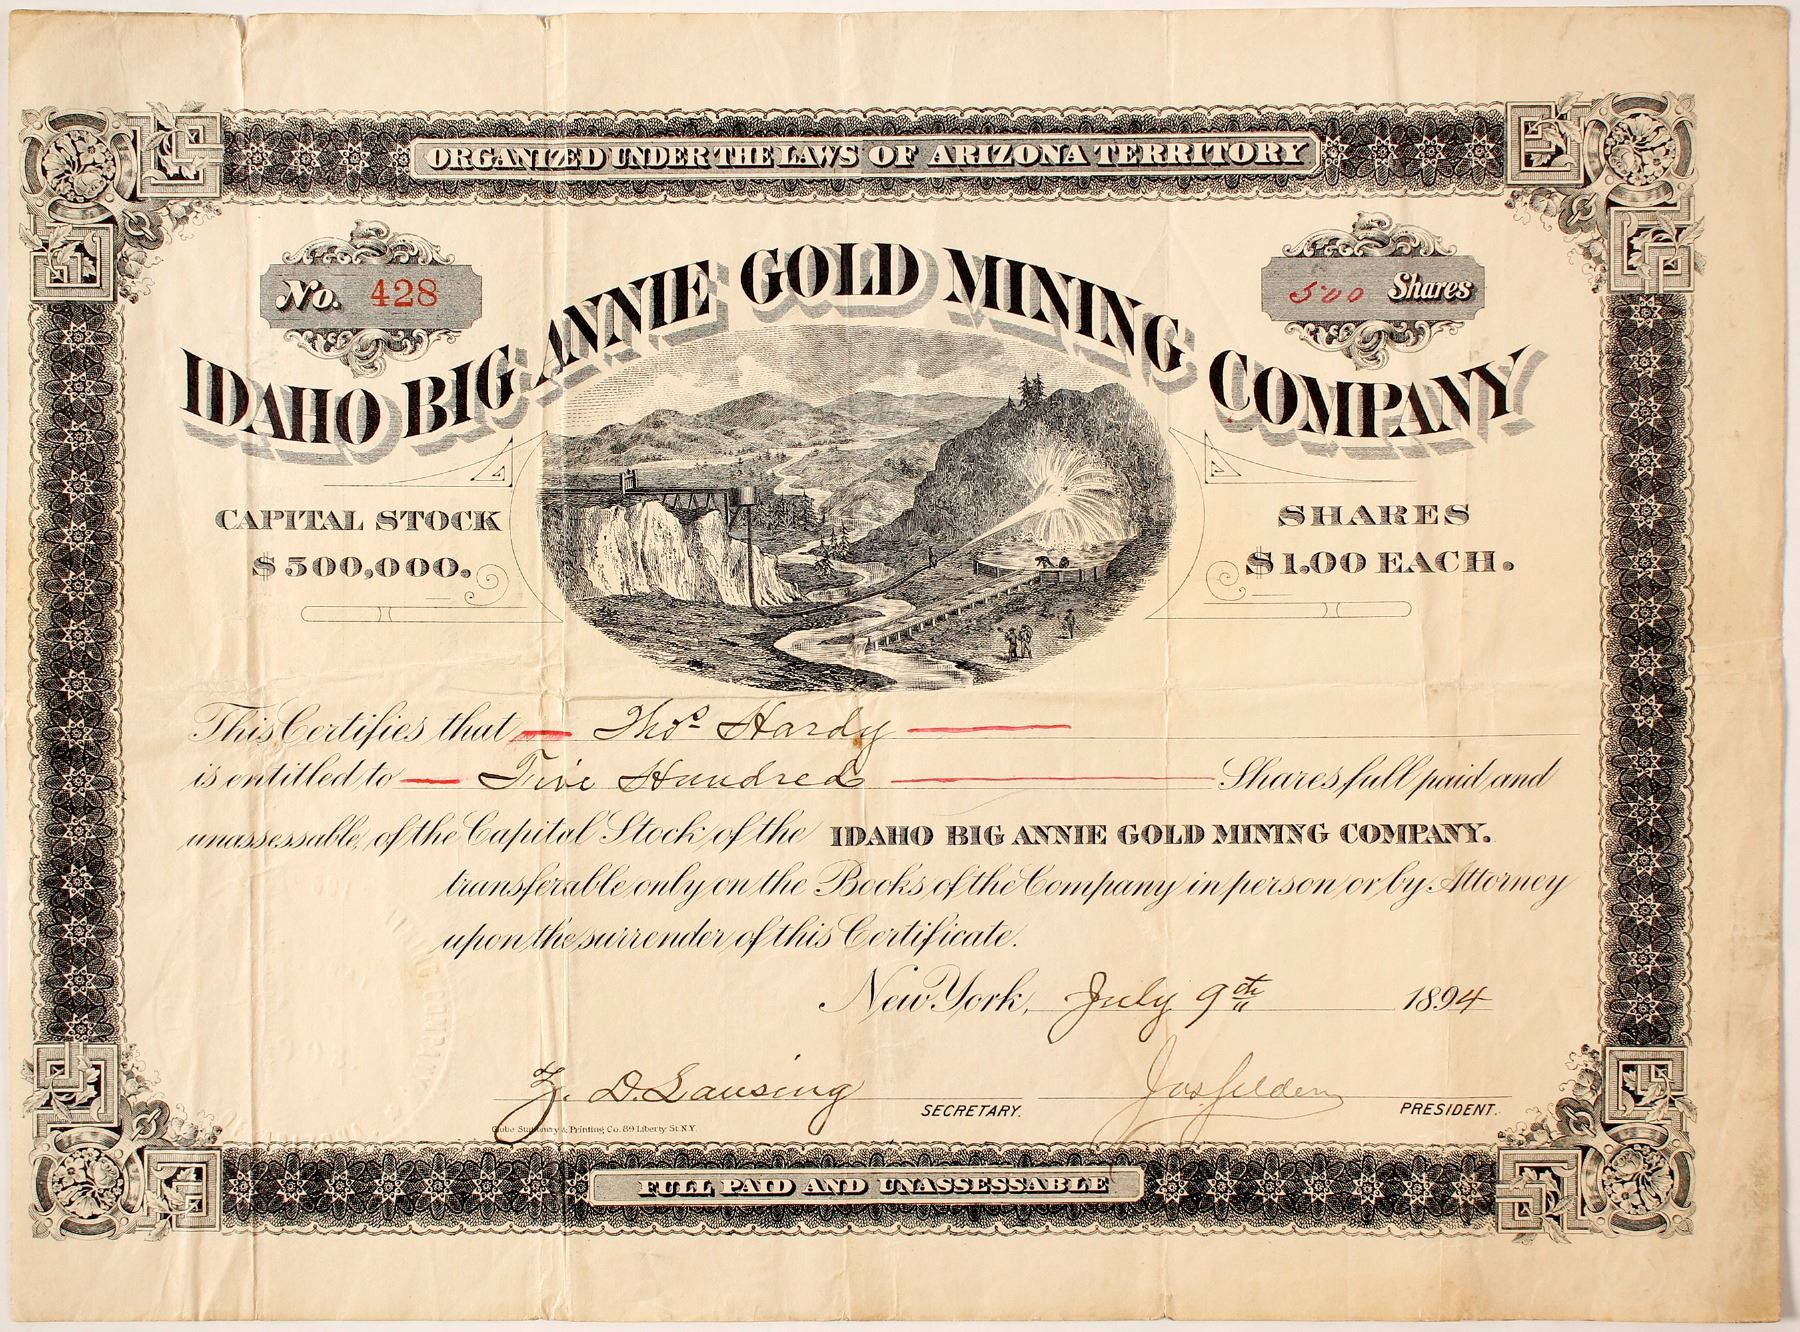 ORGANIZED UNDER THE LAWS OF ARIZONA TERRITORY
No. 428
500 Shares
IDAHO BIG ANNIE GOLD MINING COMPANY
CAPITAL STOCK
$500,000.
SHARES
$1.00 EACH.
This Certifies that Thos Hardy
is entitled to Five Hundred Shares full paid and
unassessable, of the Capital Stock of the IDAHO BIG ANNIE GOLD MINING COMPANY.
transferable only on the Books of the Company in person or by Attorney
upon the surrender of this Certificate.
New York, July 9th 1894
Z. D. Lansing SECRETARY.
Jos PRESIDENT.
Globe Stationery & Printing Co. 89 Liberty St. N.Y.
FULL PAID AND UNASSESSABLE